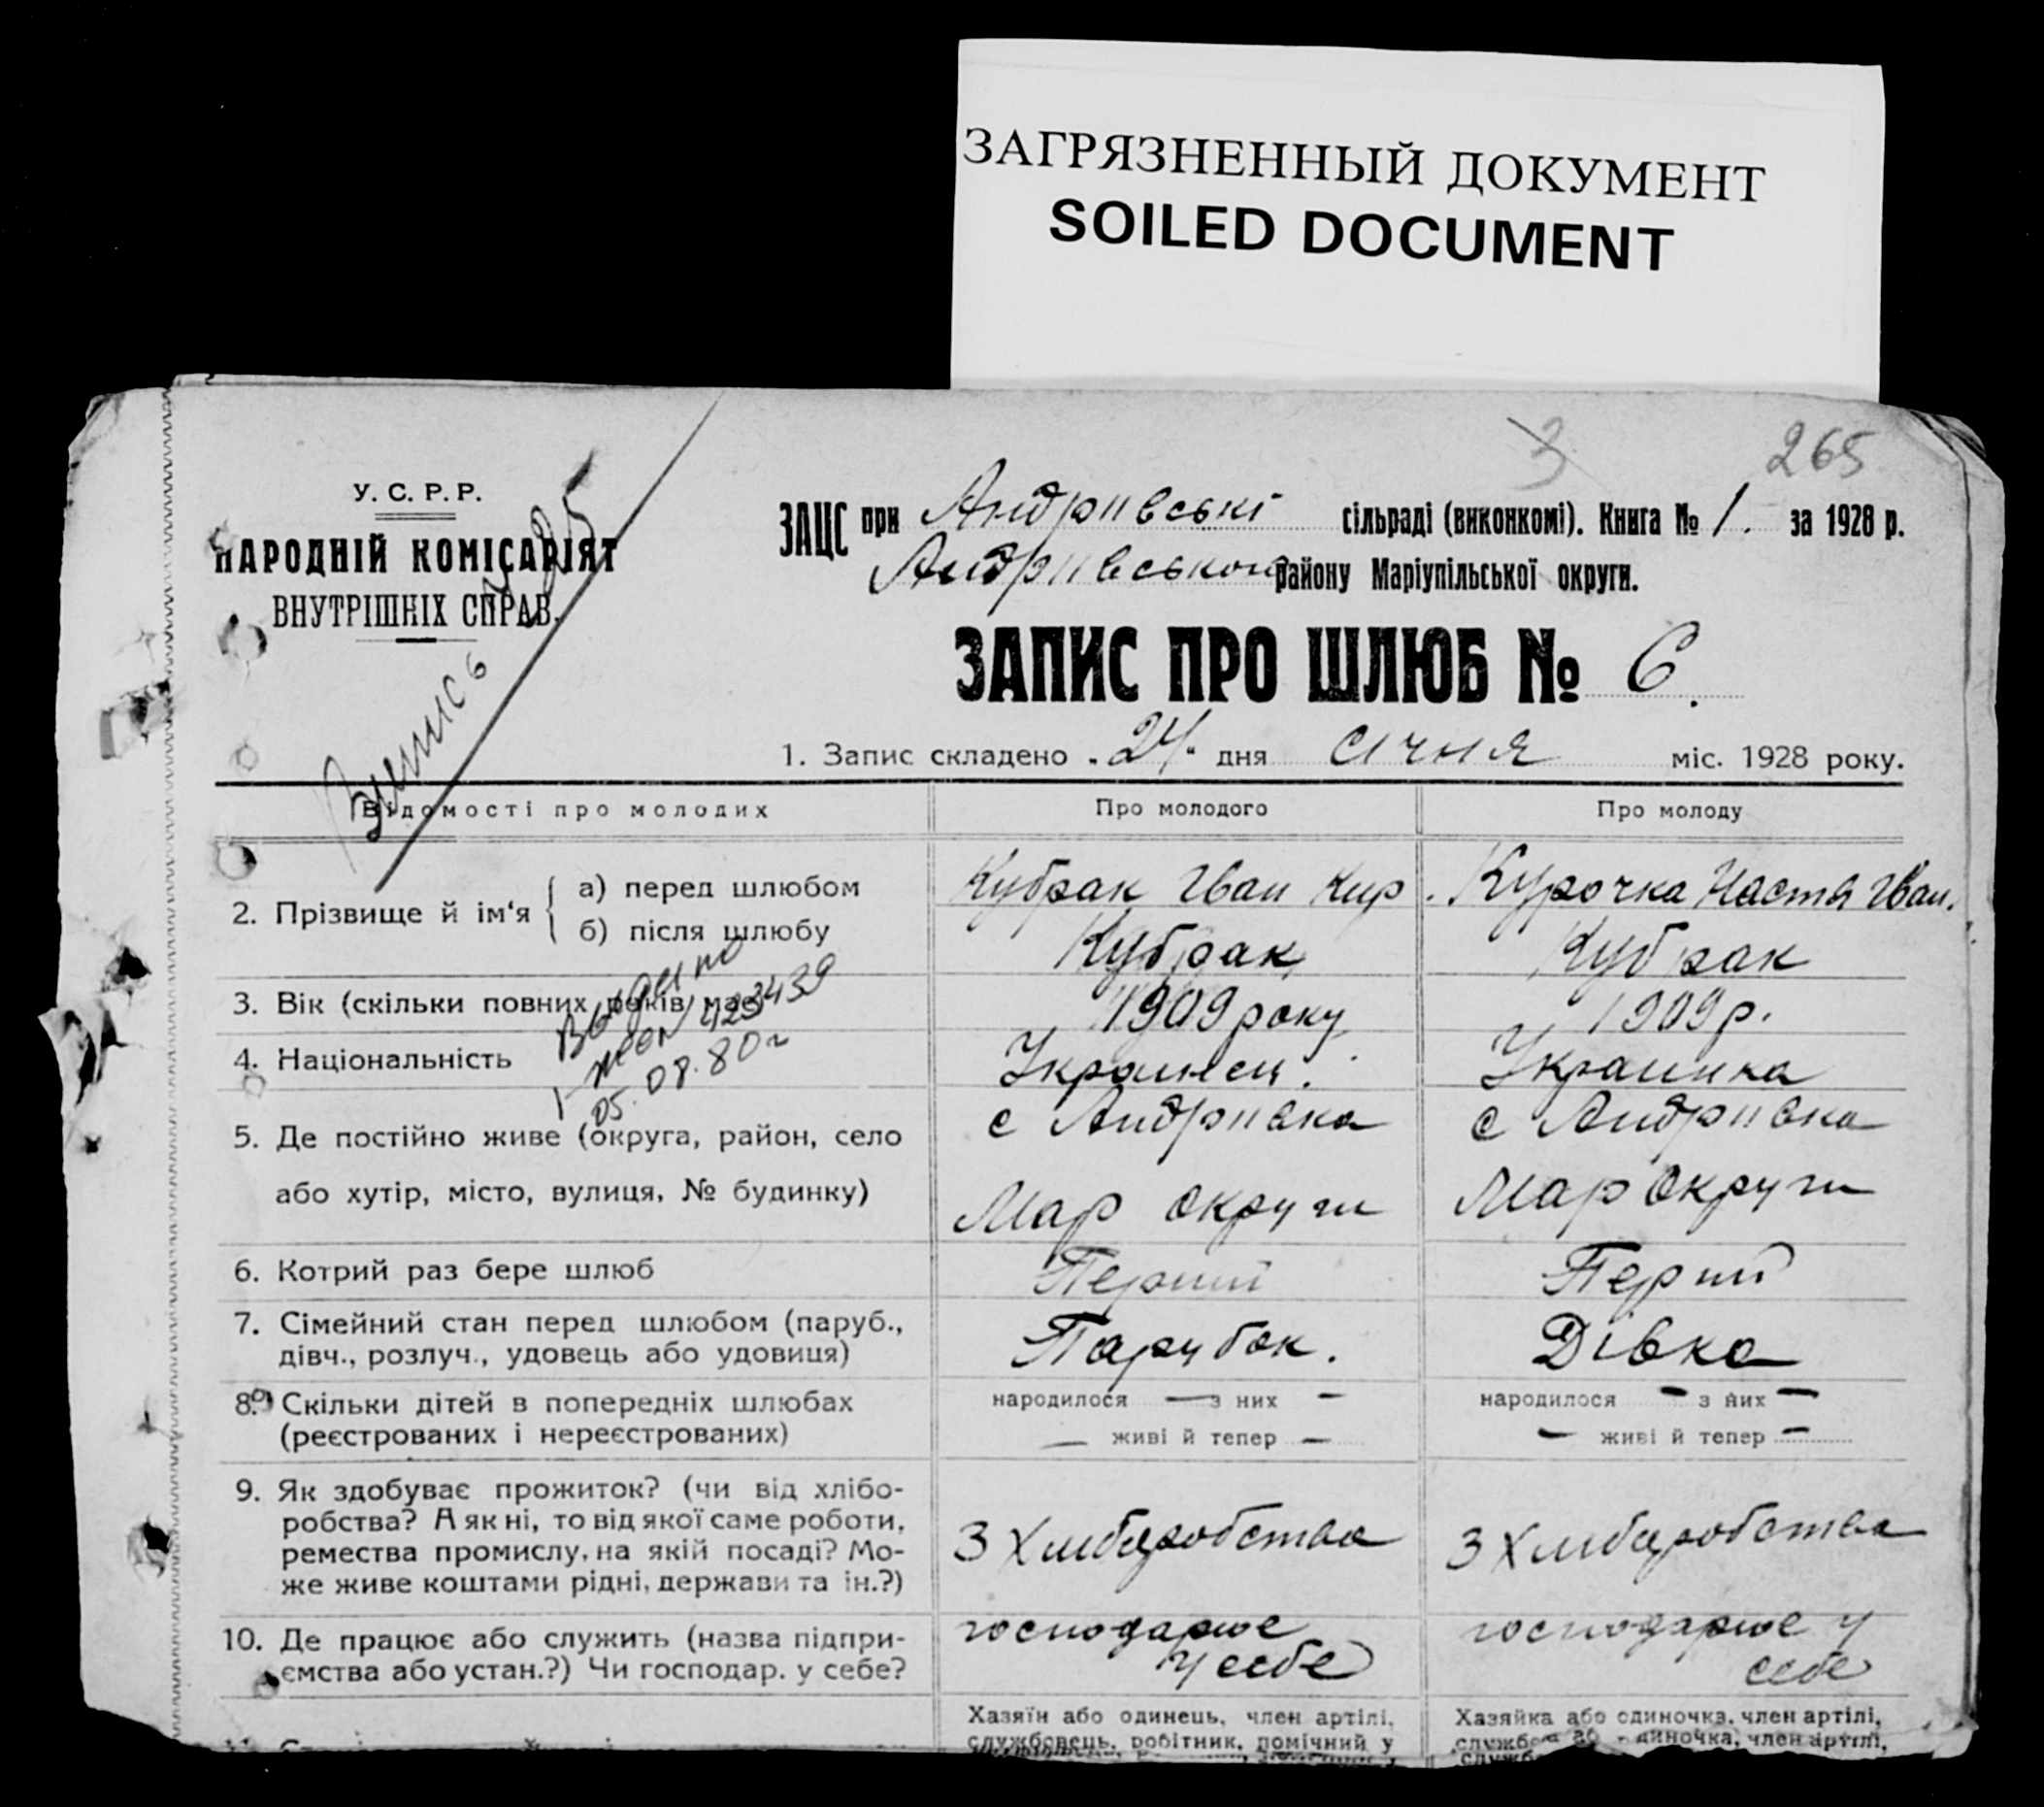 ЗАГРЯЗНЕННЫЙ ДОКУМЕНТ
SOILED DOCUMENT
3
265
У. С. Р. Р.
НАРОДНІЙ КОМІСАРІЯТ
ВНУТРІШНІХ СПРАВ.
ЗАЦС при Андриівські сільраді (виконкомі). Книга № 1. за 1928 р.
Андриівського району Маріупільської округи.
ЗАПИС ПРО ШЛЮБ № 6.
1. Запис складено „24“ дня січня міс. 1928 року.
Відомості про молодих Про молодого Про молоду
2. Прізвище й ім‘я
а) перед шлюбом Кубрак Іван Кир. Курочка Настя Іван.
б) після шлюбу Кубрак Кубрак
3. Вік (скільки повних років має) 1909 року 1909 р.
4. Національність Украинец. Украинка
Выдано
423439
05.08.80г
5. Де постійно живе (округа, район, село с Андриівка с Андриівка
або хутір, місто, вулиця, № будинку) Мар округи Мар округи
6. Котрий раз бере шлюб Перший Перший
7. Сімейний стан перед шлюбом (паруб., Парубок. Дівка
дівч., розлуч., удовець або удовиця)
8. Скільки дітей в попередніх шлюбах народилося — з них — народилося — з них —
(реєстрованих і нереєстрованих) — живі й тепер — — живі й тепер —
9. Як здобуває прожиток? (чи від хлібо-
робства? А як ні, то від якої саме роботи, З Хлиборобства З Хлиборобства
ремества промислу, на якій посаді? Мо-
же живе коштами рідні, держави та ін.?)
10. Де працює або служить (назва підпри- господарює господарює у
ємства або устан.?) Чи господар. у себе? у себе себе
Хазяїн або одинець, член артілі, Хазяйка або одиночка, член артілі,
службовець, робітник, помічний у